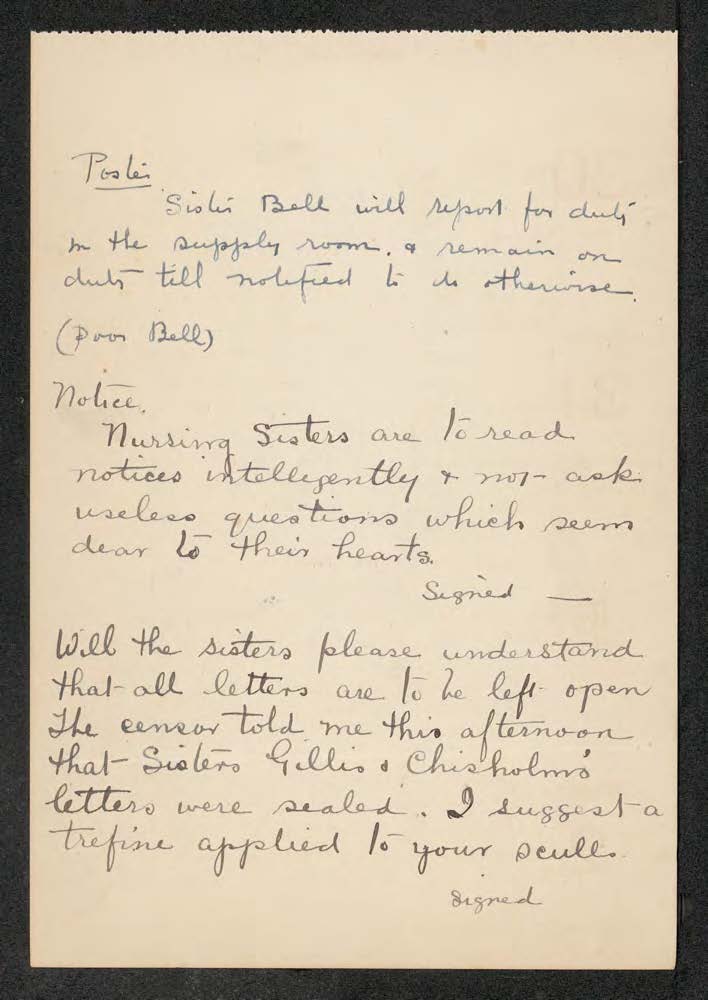 Poster
Sister Bell will report for duty
in the supply room, & remain on
duty till notified to do otherwise.
(Poor Bell)
Notice.
Nursing Sisters are to read
notices intellegently & not ask
useless questions which seem
dear to their hearts.
Signed —
Will the sisters please understand
that all letters are to be left open
The censor told me this afternoon
that Sisters Gillis & Chisholms'
letters were sealed. I suggest a
trefine applied to your sculls.
signed